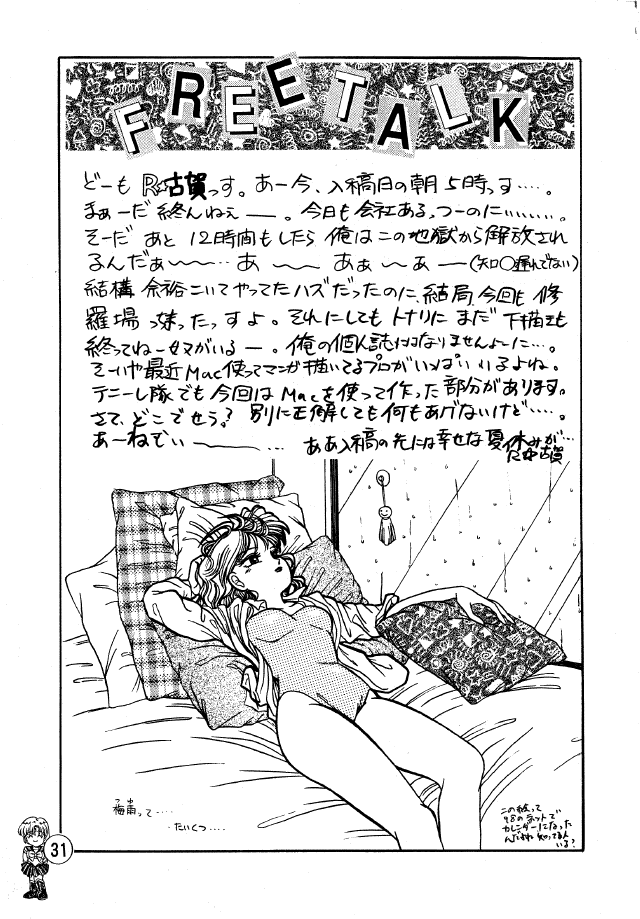 FREE TALK
どーも R·古賀っす。あー今、入稿日の朝5時っす‥‥。
まぁーだ終んねぇー。今日も会社あるっつーのに‥‥‥。
そーだ あと12時間もしたら俺はこの地獄から解放され
るんだぁ〜〜‥あ〜〜 あぁ〜ぁー
結構余裕こいてやってたハズだったのに、結局、今回も修
羅場っ妹ったっすよ。それにしてもトナリにまだ下描きも
終ってねーヤツがいるー。俺の個人誌もなりませんよーに‥‥。
そーいや最近Mac使ってマンガ描いてるプロがいっぱいいるよね。
テニーレ隊でも今回はMacを使って作った部分があります。
さて、どこでせう？別に正解しても何もあげないけど‥‥。
あーねむい〜〜‥‥ ああ入稿の先には幸せな夏休みが‥‥
R·古賀
つゆ
梅雨って‥‥
たいくつ‥‥
この絵って
98のネットで
カレンダーになった
んだわね 知ってる人
いる？
31